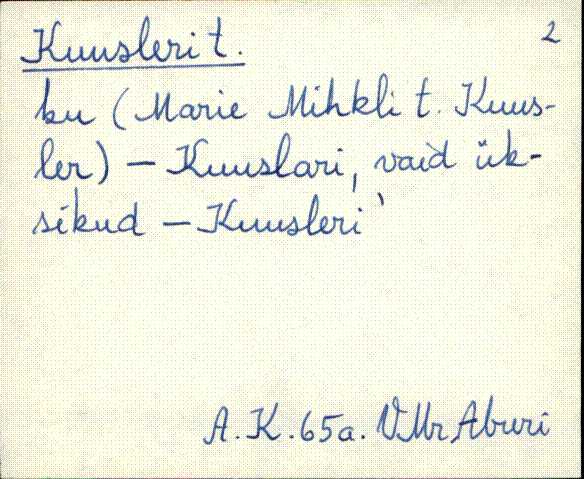 Kuusleri t. 2
ku (Marie Mihkli t. Kuus-
ler) – Kuuslari, vaid ük-
sikud – Kuusleri'
A. K. 65a. VMr Aburi